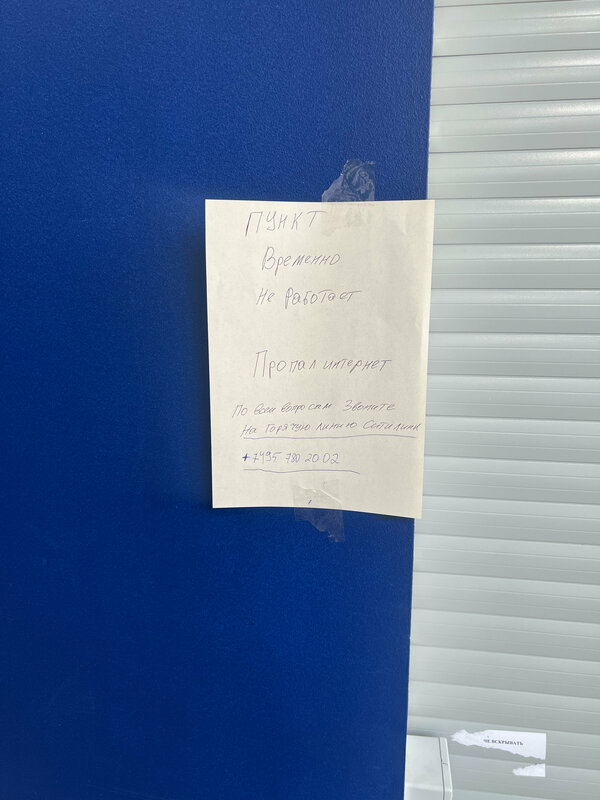 ПУНКТ
Временно
Не работает
Пропал интернет
По всем вопросам Звоните
На Горячую линию Ситилинк
+7495 780 20 02
НЕ ВСКРЫВАТЬ